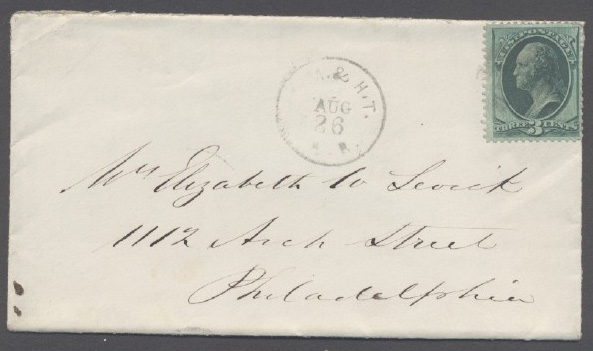 & H.T.
AUG
26
R.
U.S. POSTAGE
THREE 3 CENTS
Mrs Elizabeth W Levick
1112 Arch Street
Philadelphia